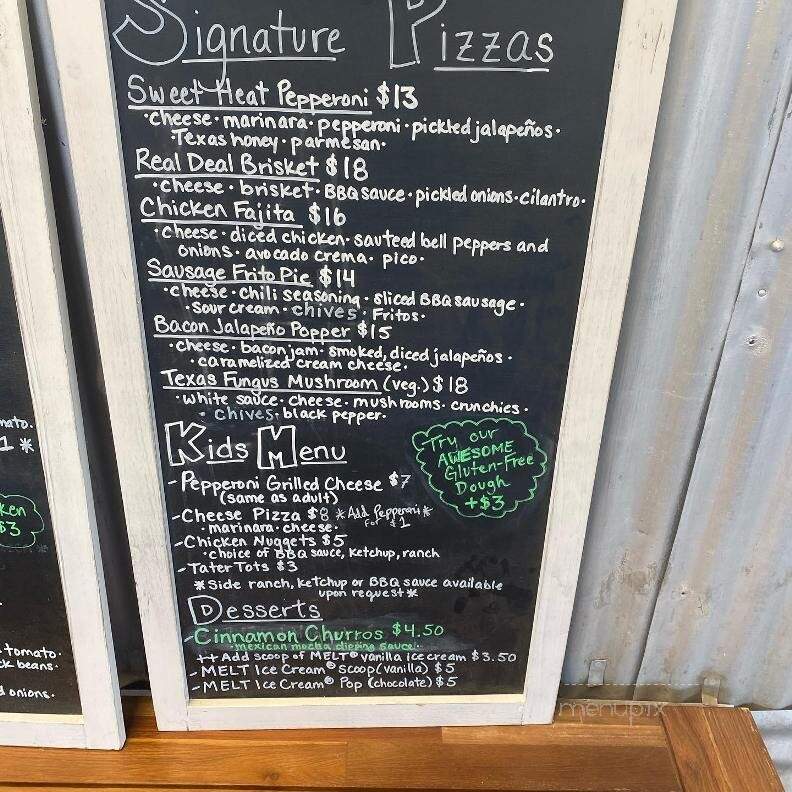 Signature Pizzas
Sweet Heat Pepperoni $13
•cheese•marinara•pepperoni•pickled jalapeños•
Texas honey•parmesan•
Real Deal Brisket $18
•cheese•brisket•BBQ sauce•pickled onions•cilantro•
Chicken Fajita $16
•cheese•diced chicken•sauteed bell peppers and
onions•avocado crema•pico•
Sausage Frito Pie $14
•cheese•chili seasoning•sliced BBQ sausage•
•sour cream•chives•Fritos•
Bacon Jalapeño Popper $15
•cheese•bacon jam•smoked, diced jalapeños•
•caramelized cream cheese•
Texas Fungus Mushroom (veg.) $18
•white sauce•cheese•mushrooms•crunchies•
•chives•black pepper•
Kids Menu
-Pepperoni Grilled Cheese $7
(same as adult)
-Cheese Pizza $8 *Add Pepperoni*
for $1
•marinara•cheese•
-Chicken Nuggets $5
•choice of BBQ sauce, ketchup, ranch
-Tater Tots $3
*Side ranch, ketchup or BBQ sauce available
upon request*
Try our
AWESOME
Gluten-Free
Dough
+$3
Desserts
-Cinnamon Churros $4.50
•mexican mocha dipping sauce•
++Add scoop of MELT® vanilla ice cream $3.50
-MELT Ice Cream® Scoop (vanilla) $5
-MELT Ice Cream® Pop (chocolate) $5
1 *
$3
•tomato•
beans•
onions•
menupix